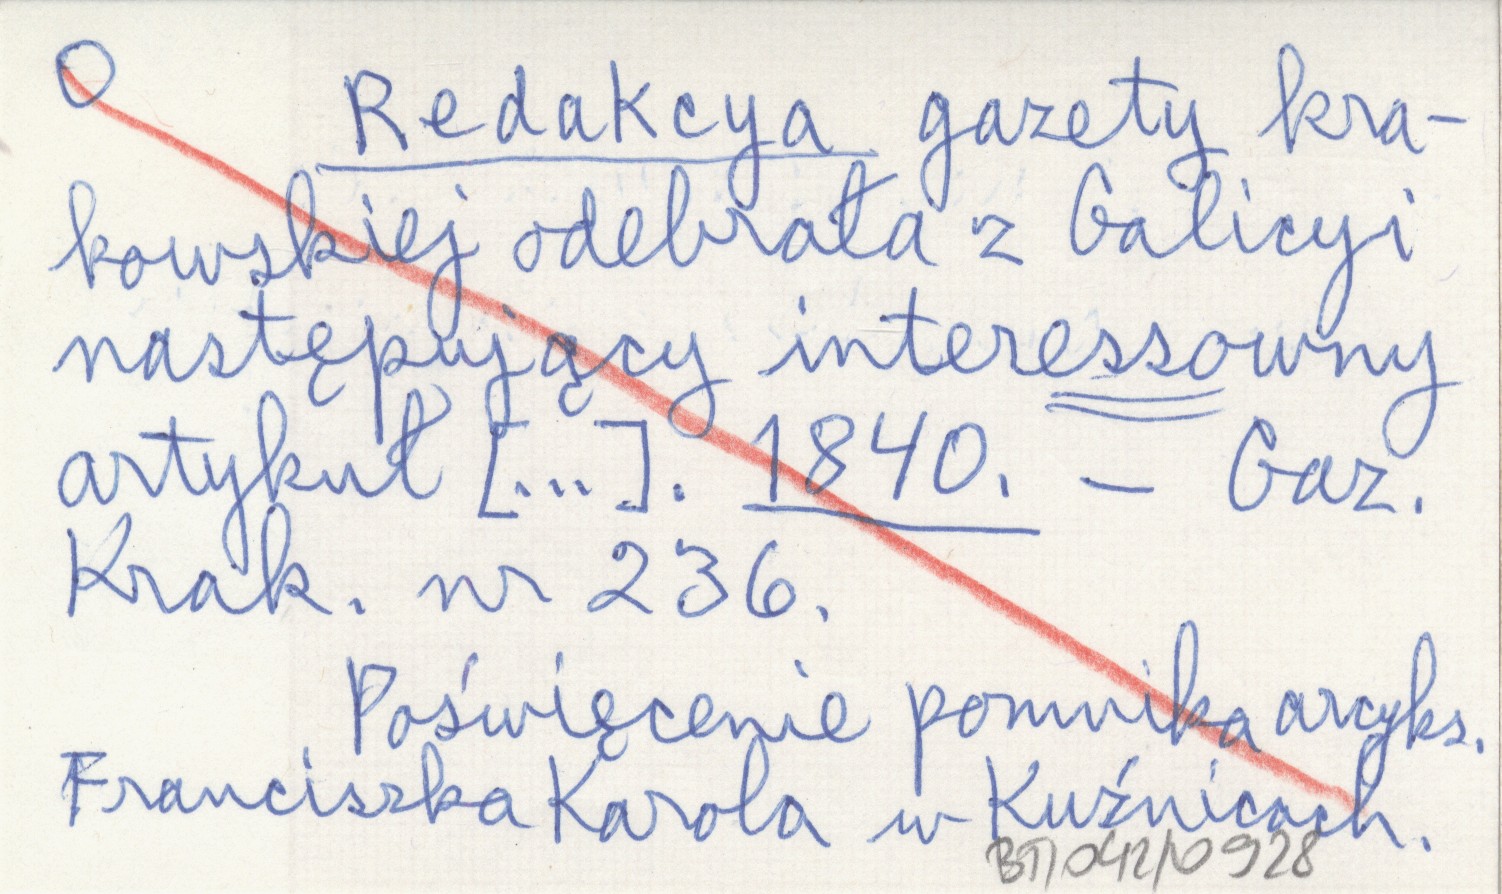 O Redakcya gazety kra-
kowskiej odebrała z Galicyi
następujący interessowny
artykuł [...]. 1840. — Gaz.
Krak. nr 236.
Poświęcenie pomnika arcyks.
Franciszka Karola w Kuźnicach.
BT/042/0928